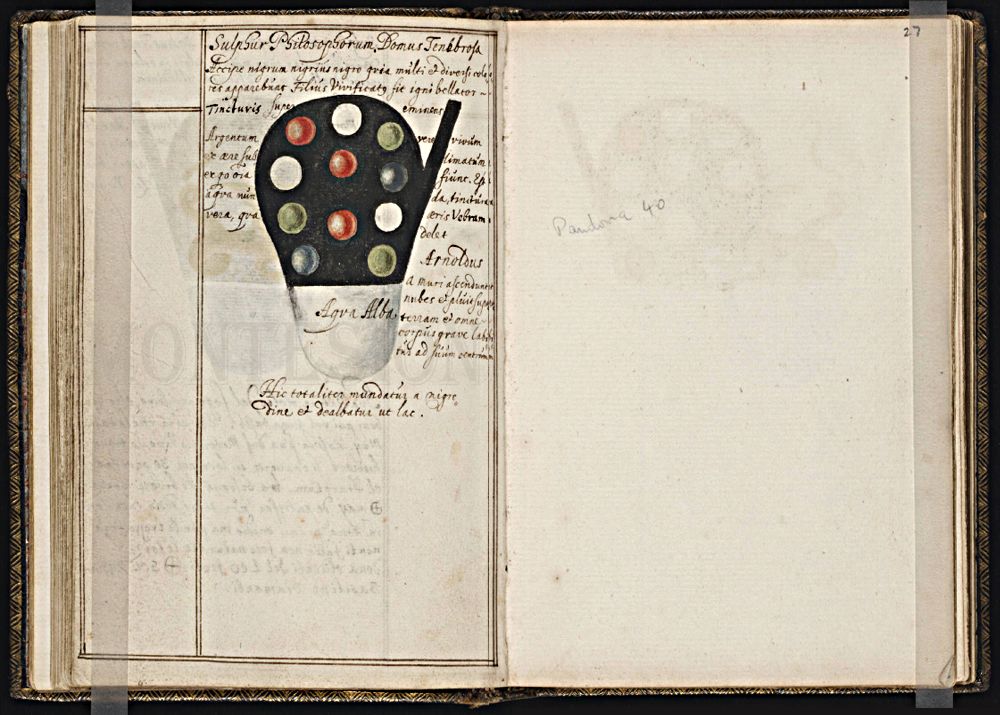 Sulphur Philosophorum Domus Tenebrosa
Accipe nigrum nigrius nigro quia multi et diversi colo
res apparebunt Filius Vivificatus fit igni bellator
Tincturis super eminens
Argentum vere vivum
ex ære sub limatum
ex quo oia fiunt. Est
aqua mun da, tinctura
vera, qua æris Vmbram
delet
Arnoldus
a muri ascendunt
nubes et pluit super
terram et omne
corpus grave labi
tur ad suum centrum
Aqua Alba
Hic totaliter mundatur a nigre
dine et dealbatur ut lac.
27
Pandora 40